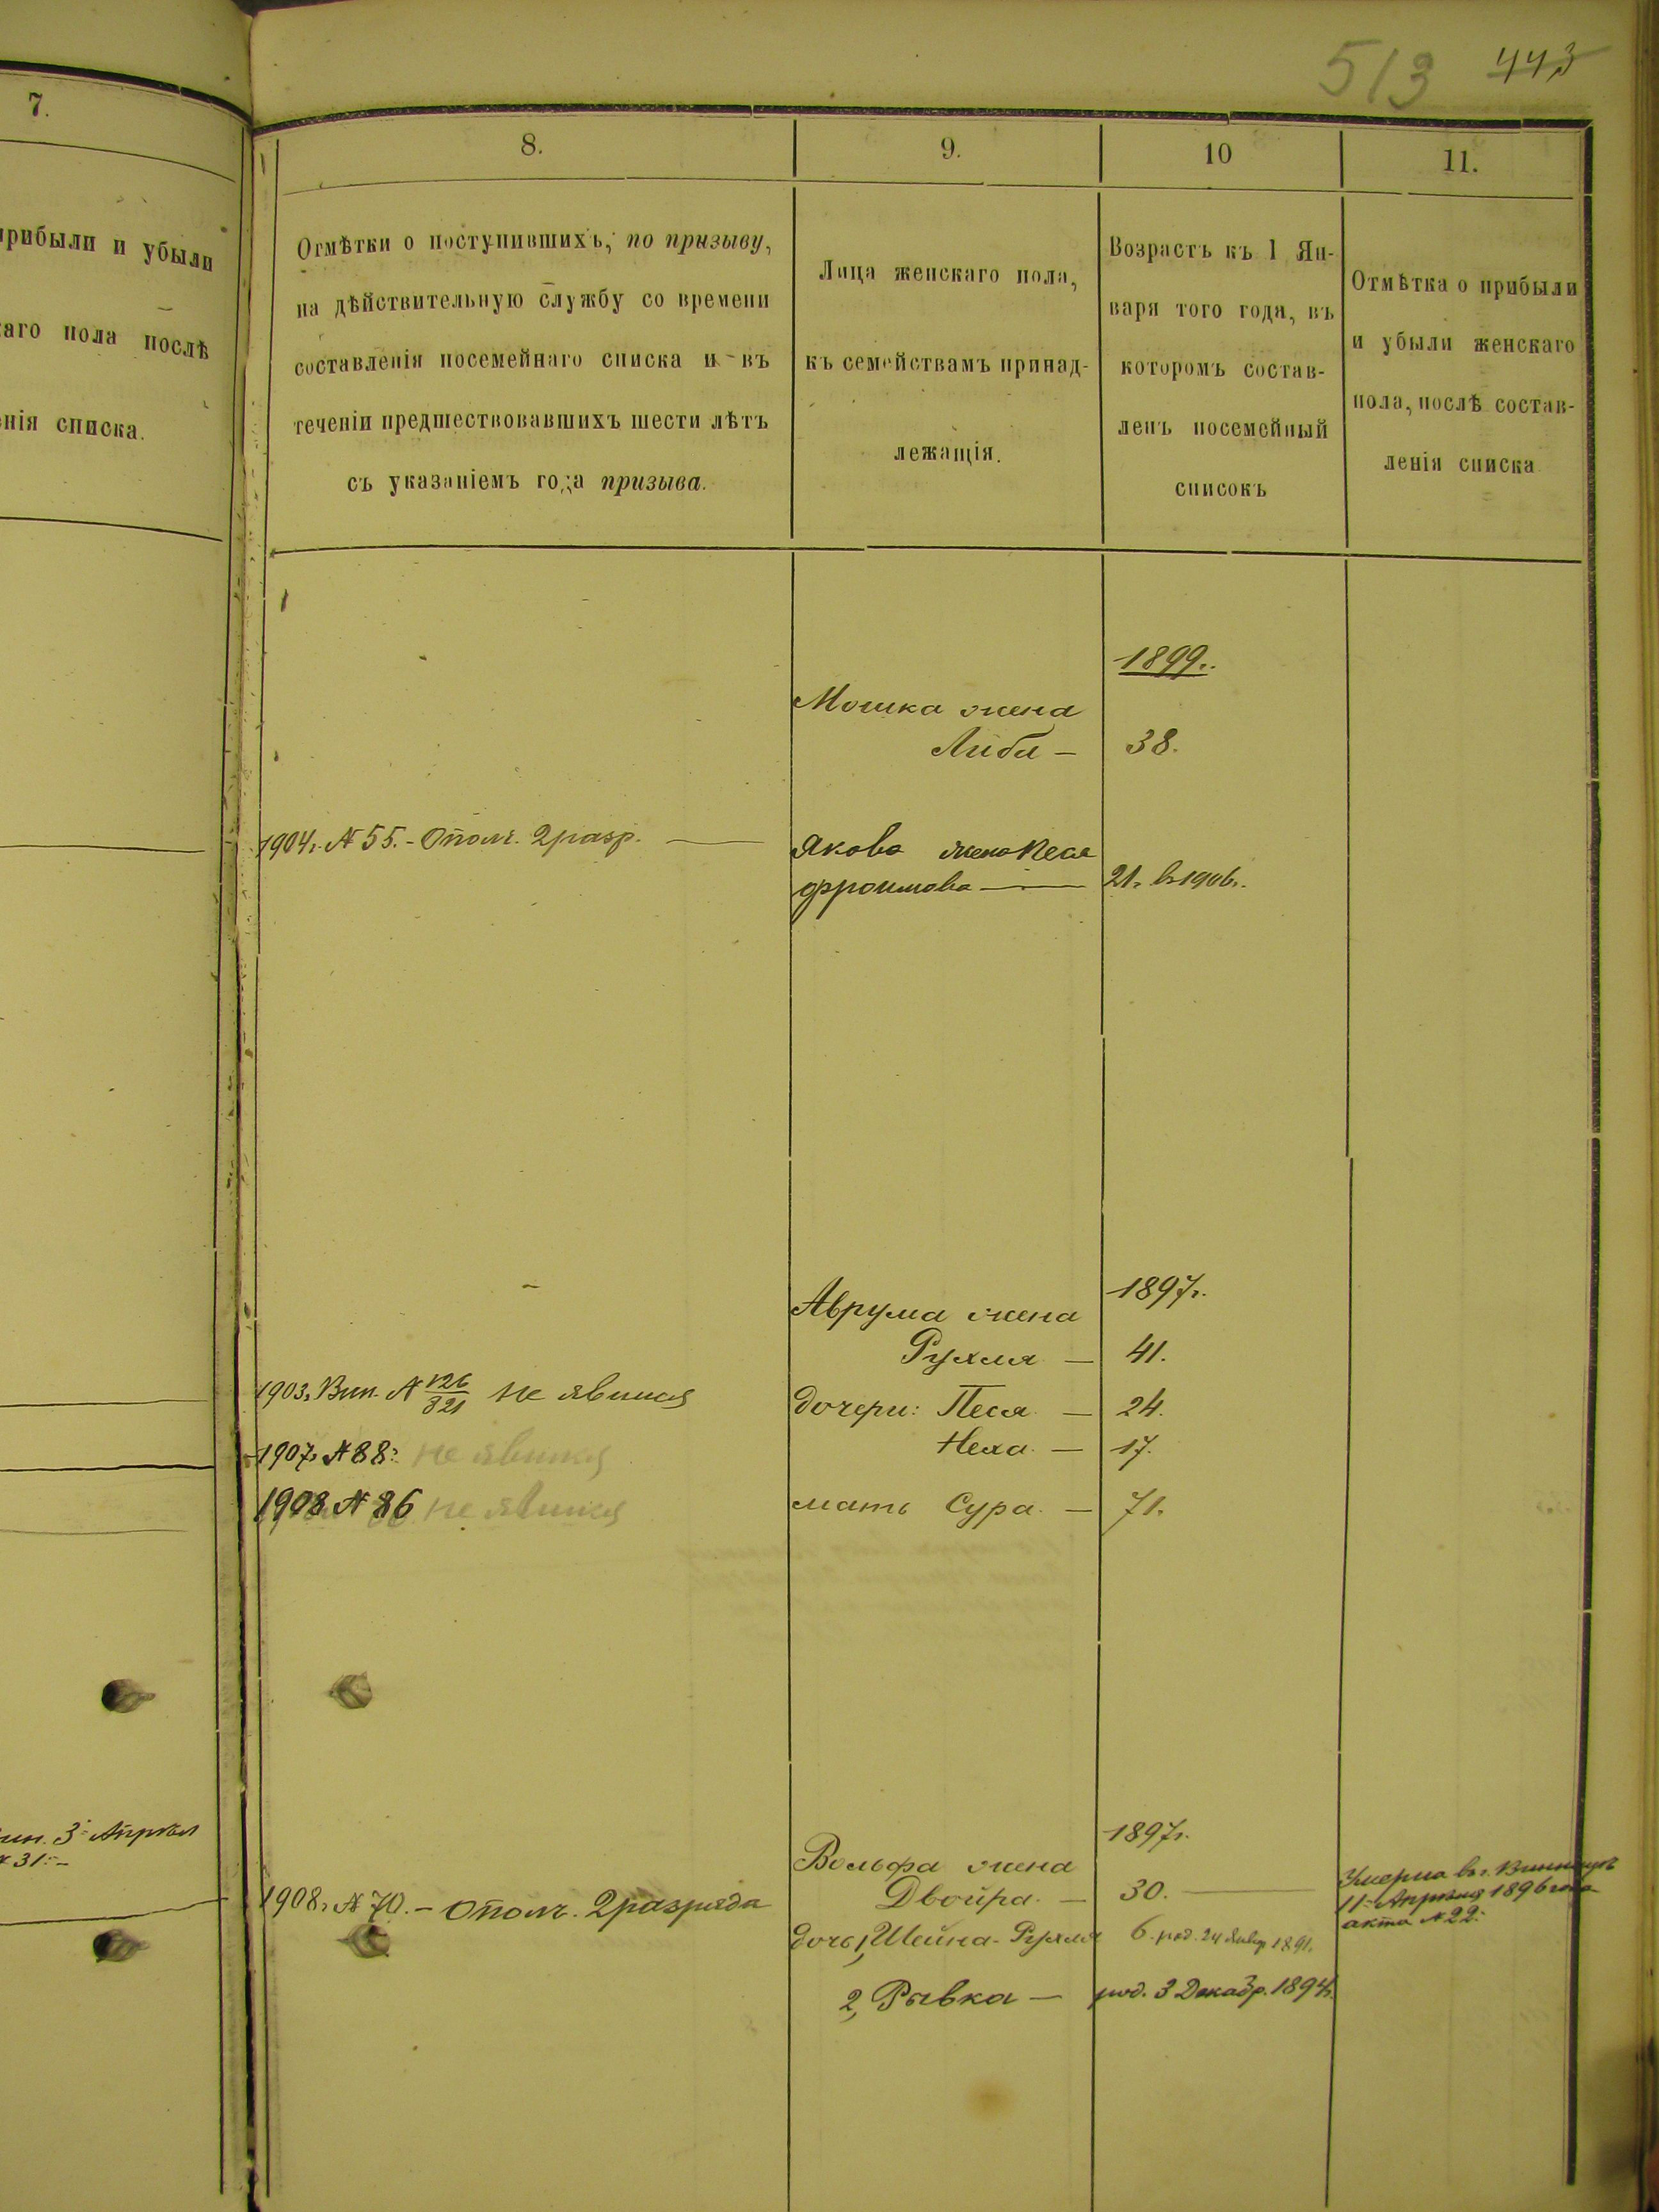 513 443
7.
8.
9.
10
11.
прибыли и убыли
каго пола послѣ
енія списка.
Отмѣтки о поступившихъ, по призыву,
на дѣйствительную службу со времени
составленія посемейнаго списка и въ
теченіи предшествовавшихъ шести лѣтъ
съ указаніемъ года призыва.
Лица женскаго пола,
къ семействамъ принад-
лежащія.
Возрастъ къ 1 Ян-
варя того года, въ
которомъ состав-
ленъ посемейный
списокъ
Отмѣтка о прибыли
и убыли женскаго
пола, послѣ состав-
ленія списка
1899г.
Мошка жена
Либа — 38.
1904г. № 55. - Ополч. 2 разр. —
Якова жена Песя
Фроимова — 21. въ 1906г.
1897г.
Аврума жена
Рухля — 41.
1903г. Вин. № 126/321 не явился
дочери: Песя — 24.
1907г. № 88: не явился
Неха — 17.
1908 № 86 не явился
мать Сура — 71.
3 Апрѣл
№ 31: -
1897г.
Вольфа жена
Двойра — 30. —
Умерла въ г. Винницѣ
11 Апрѣля 1896 года
акта № 22:
1908г. № 70. - Ополч. 2 разряда
дочь 1, Шейна-Рухля 6. род. 24 Январ 1891.
2, Рывка — род. 3 Декабр. 1894г.